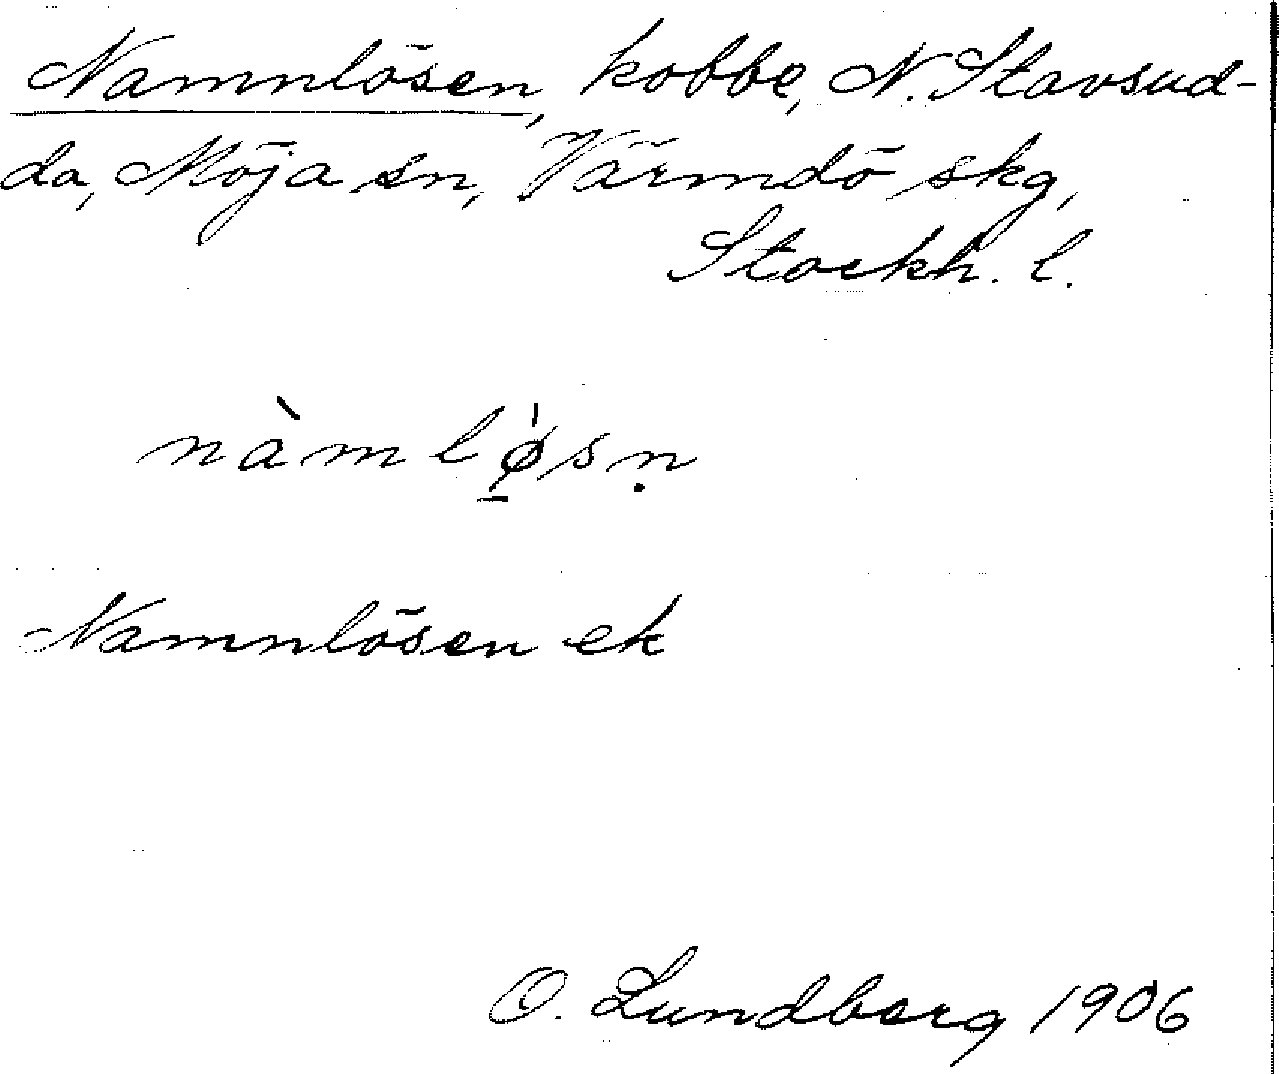 Namnlösen, kobbe, N. Stavsud-
da, Möja sn, Värmdö skg,
Stockh. l.
nàmlø̱̍sṇ
Namnlösen ek
O. Lundberg 1906